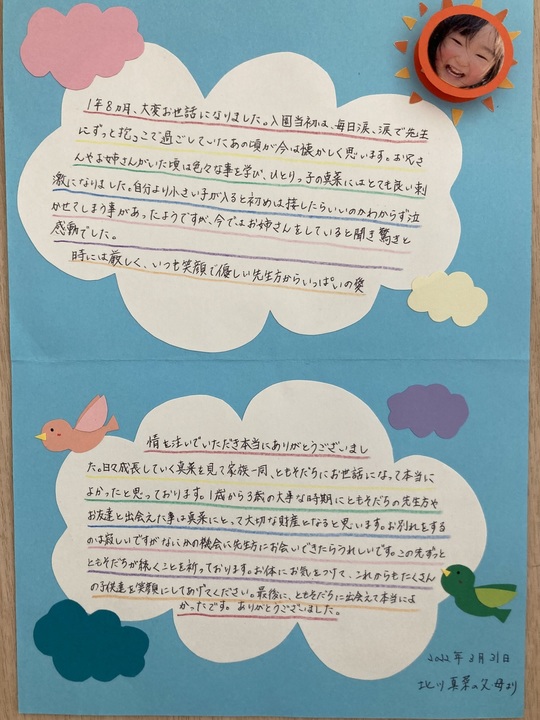 1年8ヵ月、大変お世話になりました。入園当初は、毎日涙、涙で先生
にずっと抱っこで過ごしていたあの頃が今は懐かしく思います。お兄さ
んやお姉さんがいた頃は色々な事を学び、ひとりっ子の真菜にはとても良い刺
激になりました。自分より小さい子が入ると初めは接したらいいのかわからず泣
かせてしまう事があったようですが、今ではお姉さんをしていると聞き驚きと
感動でした。
時には厳しく、いつも笑顔で優しい先生方からいっぱいの愛
情を注いでいただき本当にありがとうございまし
た。日々成長していく真菜を見て家族一同、ともそだちにお世話になって本当に
よかったと思っております。1歳から3歳の大事な時期にともそだちの先生方や
お友達と出会えた事は真菜にとって大切な財産となると思います。お別れをする
のは寂しいですがなにかの機会に先生方にお会いできたらうれしいです。この先ずっと
ともそだちが続くことを祈っております。お体にお気をつけて、これからもたくさん
の子供達を笑顔にしてあげてください。最後に、ともそだちに出会えて本当によ
かったです。ありがとうございました。
2022年3月31日
北川真菜の父母より